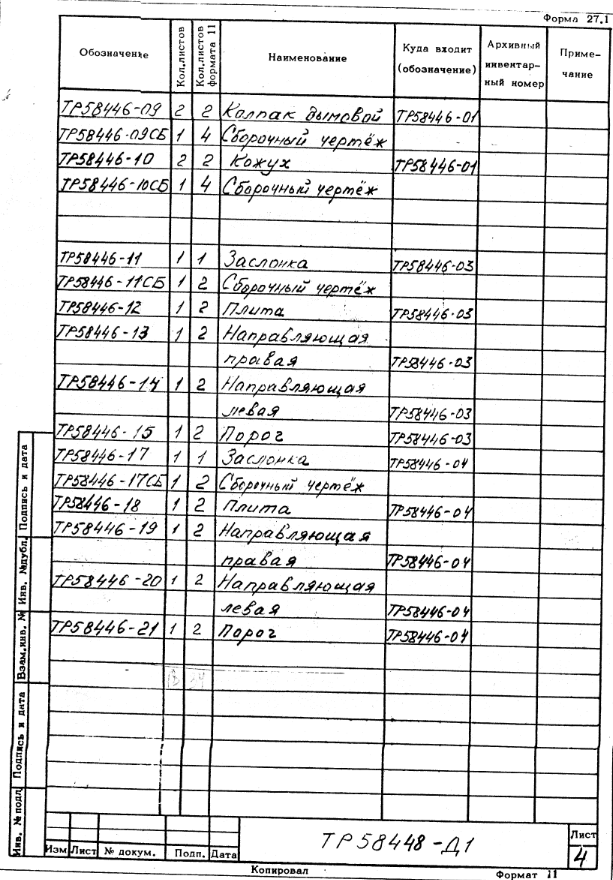 Форма 27.1
Обозначение Кол.листов Кол.листов формата 11 Наименование Куда входит (обозначение) Архивный инвентарный номер Примечание
ТР58446-09 2 2 Колпак дымовой ТР58446-01
ТР58446-09СБ 1 4 Сборочный чертёж
ТР58446-10 2 2 Кожух ТР58446-01
ТР58446-10СБ 1 4 Сборочный чертёж
ТР58446-11 1 1 Заслонка ТР58446-03
ТР58446-11СБ 1 2 Сборочный чертёж
ТР58446-12 1 2 Плита ТР58446-03
ТР58446-13 1 2 Направляющая
правая ТР58446-03
ТР58446-14 1 2 Направляющая
левая ТР58446-03
ТР58446-15 1 2 Порог ТР58446-03
ТР58446-17 1 1 Заслонка ТР58446-04
ТР58446-17СБ 1 2 Сборочный чертёж
ТР58446-18 1 2 Плита ТР58446-04
ТР58446-19 1 2 Направляющая
правая ТР58446-04
ТР58446-20 1 2 Направляющая
левая ТР58446-04
ТР58446-21 1 2 Порог ТР58446-04
Инв. № подл. Подпись и дата Взам.инв. № Инв. №дубл. Подпись и дата
Изм Лист № докум. Подп. Дата
ТР58448-Д1
Лист
4
Копировал Формат 11